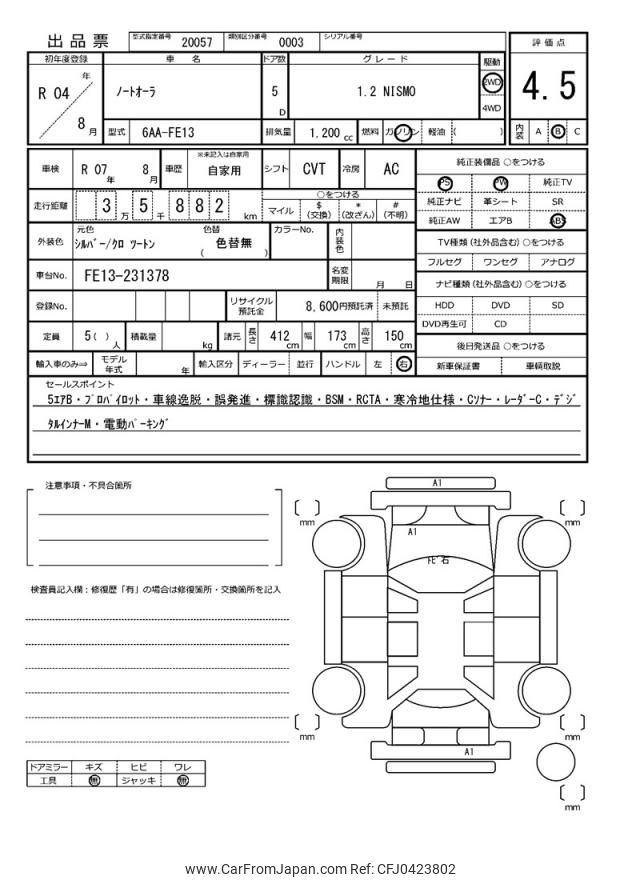 出品票 型式指定番号 20057 類別区分番号 0003 シリアル番号
評価点
4.5
内装 A B C
初年度登録 車名 ドア数 グレード 駆動
R 04 年 8 月
ﾉｰﾄｵｰﾗ 5 D 1.2 NISMO 2WD 4WD
型式 6AA-FE13 排気量 1.200 cc 燃料 ガソリン 軽油 ( )
車検 R 07 年 8 月 車歴 ※未記入は自家用 自家用 シフト CVT 冷房 AC
走行距離 3 万 5 千 8 8 2 km
○をつける
マイル $ (交換) * (改ざん) # (不明)
外装色 元色 ｼﾙﾊﾞｰ/ｸﾛ ﾂｰﾄﾝ 色替 ( 色替無 ) カラーNo. 内装色
車台No. FE13-231378 名変期限 月 日
登録No. リサイクル預託金 8,600円預託済 未預託
定員 5( ) 人 積載量 kg 諸元 長さ 412 cm 幅 173 cm 高さ 150 cm
輸入車のみ⇒ モデル年式 年 輸入区分 ディーラー 並行 ハンドル 左 右
純正装備品 ○をつける
PS PW 純正TV
純正ナビ 革シート SR
純正AW エアB ABS
TV種類 (社外品含む) ○をつける
フルセグ ワンセグ アナログ
ナビ種類 (社外品含む) ○をつける
HDD DVD SD
DVD再生可 CD
後日発送品 ○をつける
新車保証書 車輌取説
セールスポイント
5ｴｱB・ﾌﾟﾛﾊﾟｲﾛｯﾄ・車線逸脱・誤発進・標識認識・BSM・RCTA・寒冷地仕様・Cｿﾅｰ・ﾚｰﾀﾞｰC・ﾃﾞｼﾞ
ﾀﾙｲﾝﾅｰM・電動ﾊﾟｰｷﾝｸﾞ
注意事項・不具合箇所
検査員記入欄：修復歴「有」の場合は修復箇所・交換箇所を記入
A1
A1
ﾄﾋﾞ石
A1
mm
mm
mm
mm
mm
ドアミラー キズ ヒビ ワレ
工具 無 ジャッキ 無
www.CarFromJapan.com Ref: CFJ0423802